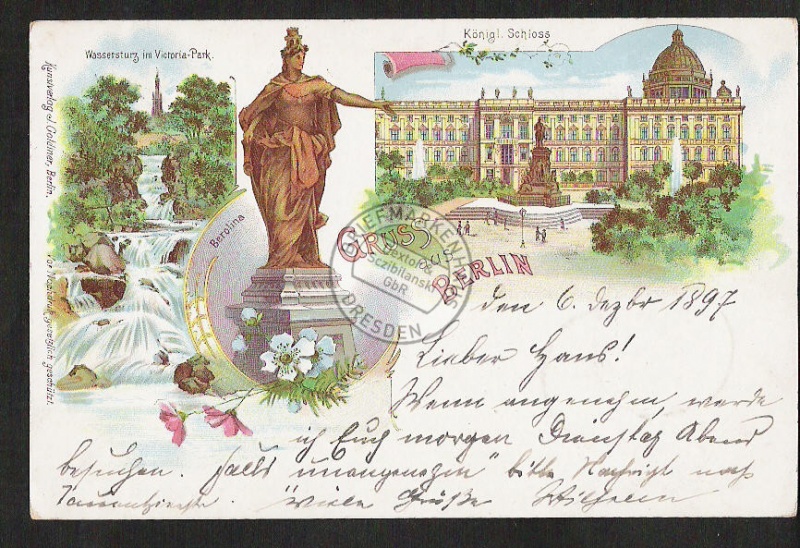 Wassersturz im Victoria-Park.
Königl. Schloss
Kunstverlag J. Goldiner, Berlin.
Vor Nachdruck gesetzlich geschützt.
Berolina
GRUSS
aus
BERLIN
BRIEFMARKENHAUS
Sczibilanski
GbR
DRESDEN
den 6. Dezbr 1897
Lieber Hans!
Wenn angenehm, werde
ich Euch morgen Dienstag Abend
besuchen. Falls "unangenehm" bitte Nachricht nach
Tauentzienstr. "Viele Grüße Wilhelm